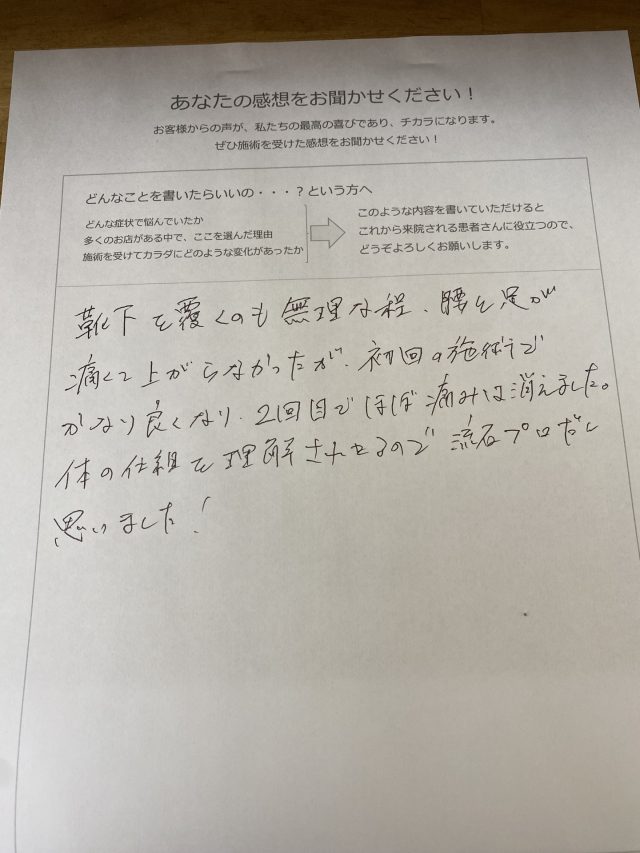 あなたの感想をお聞かせください！
お客様からの声が、私たちの最高の喜びであり、チカラになります。
ぜひ施術を受けた感想をお聞かせください！
どんなことを書いたらいいの・・・？という方へ
どんな症状で悩んでいたか
多くのお店がある中で、ここを選んだ理由
施術を受けてカラダにどのような変化があったか
このような内容を書いていただけると
これから来院される患者さんに役立つので、
どうぞよろしくお願いします。
靴下を覆くのも無理な程、腰と足が
痛くて上がらなかったが、初回の施術で
かなり良くなり、2回目でほぼ痛みは消えました。
体の仕組を理解されてるので流石プロだと
思いました！